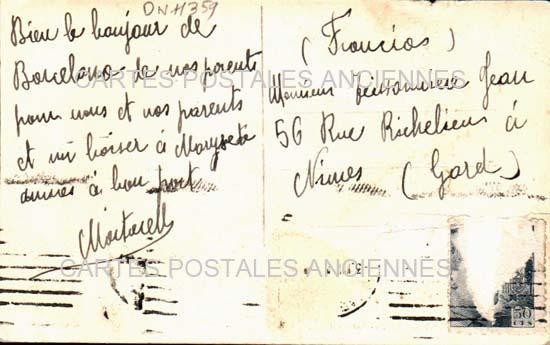 DNH359
Bien le bonjour de
Barcelona de nos parents
pour vous et nos parents
et un baiser à
arrives à bon port
(Francia)
Monsieur Jean
56 Rue Richelieu à
Nimes (Gard)
CARTES POSTALES ANCIENNES
CARTES POSTALES ANCIENNES
50
CTS